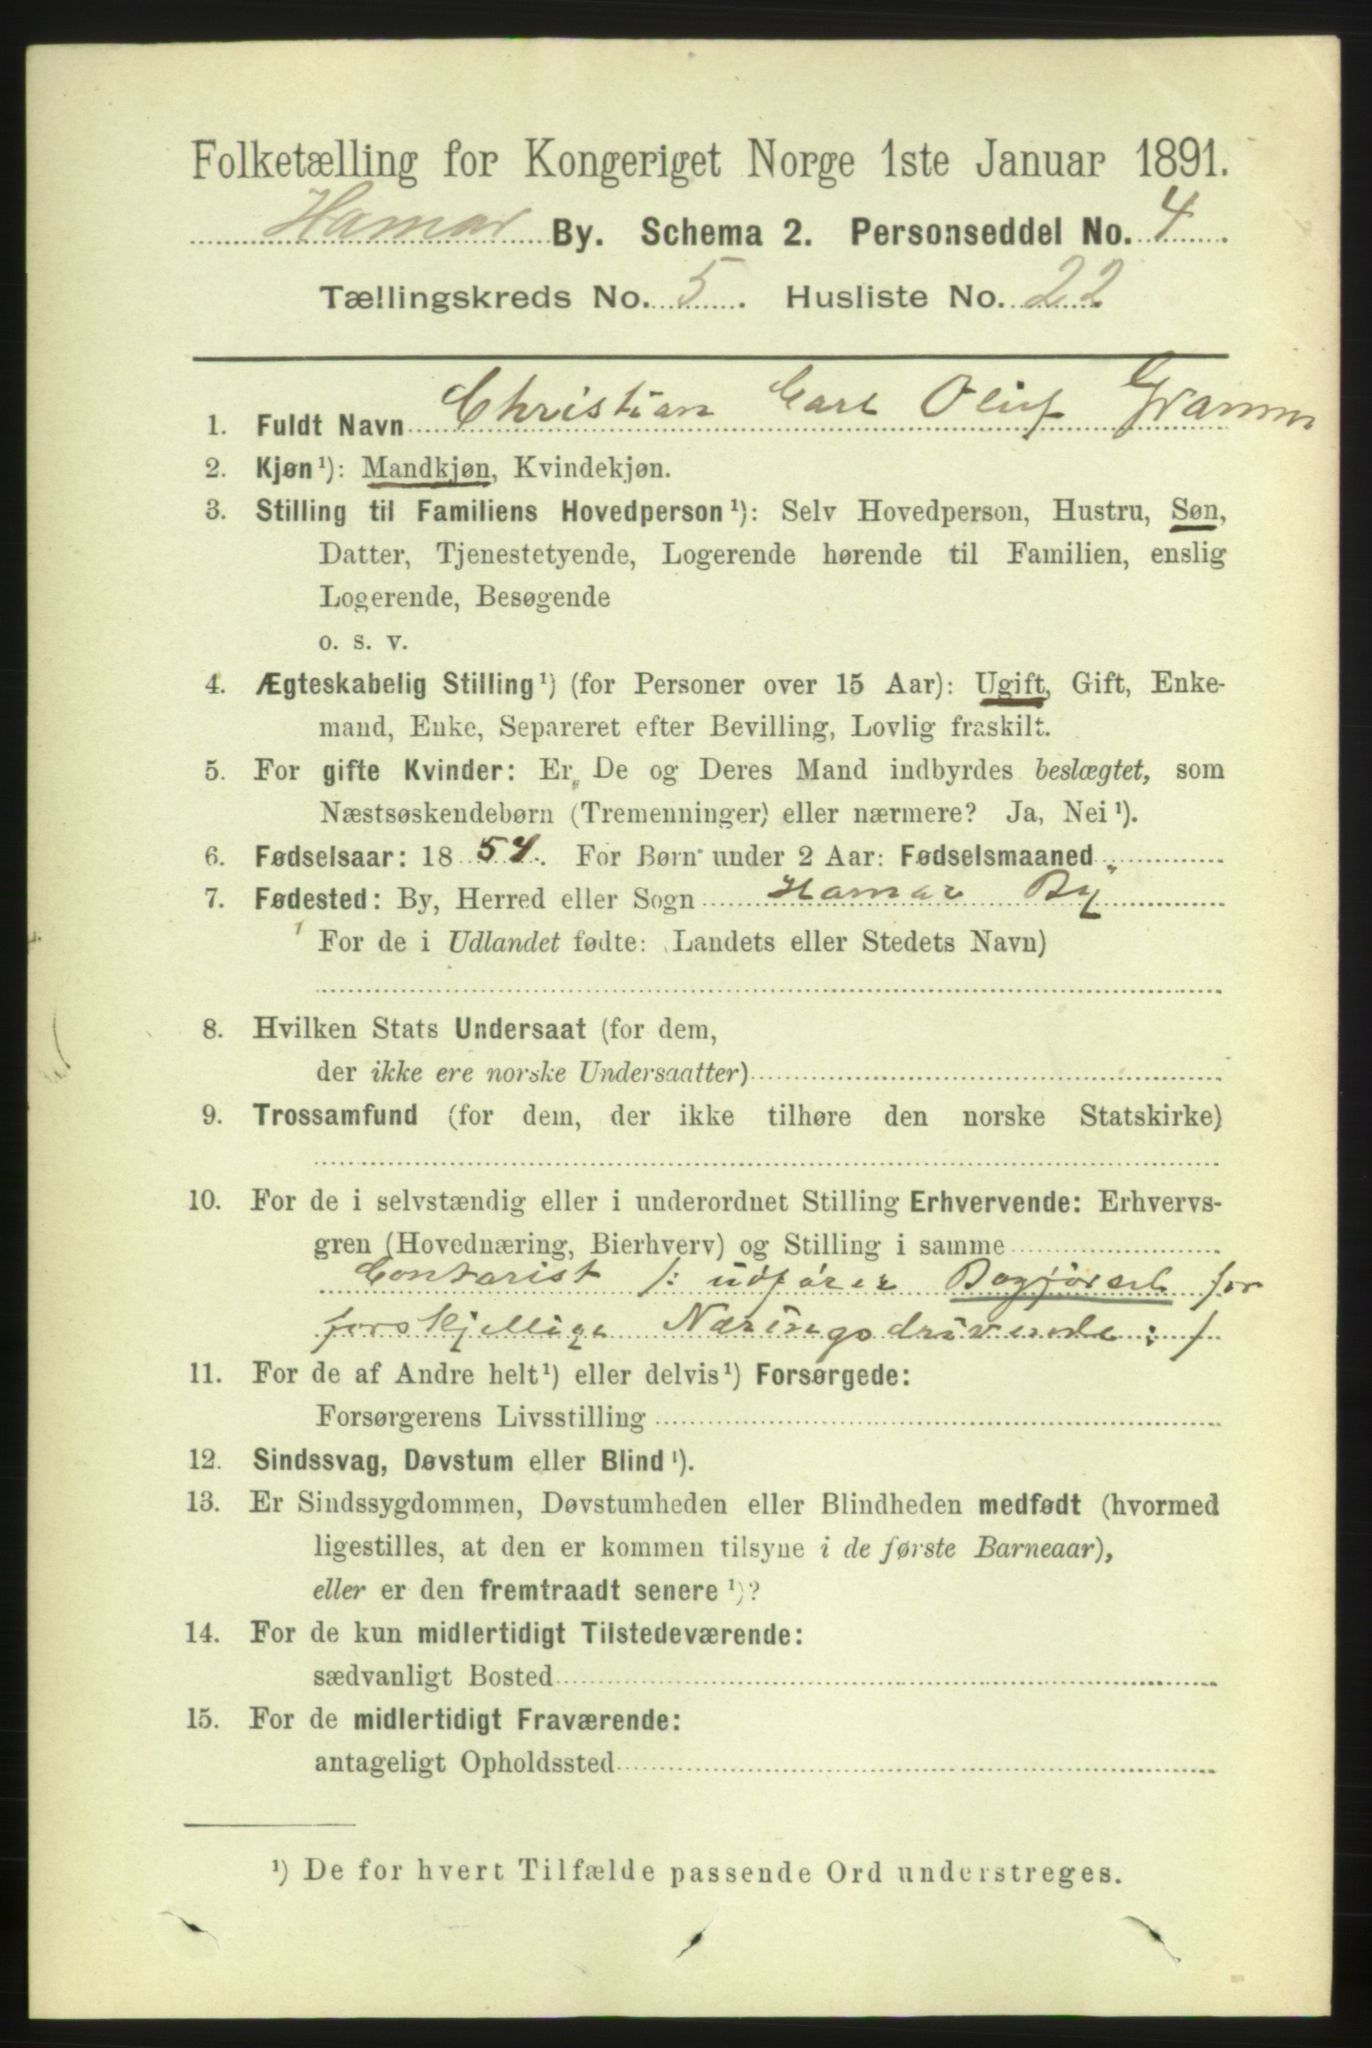 Folketælling for Kongeriget Norge 1ste Januar 1891.
Hamar By. Schema 2. Personseddel No. 4
Tællingskreds No. 5. Husliste No. 22
1. Fuldt Navn Christian Carl Oluf Gramm
2. Kjøn¹): Mandkjøn, Kvindekjøn.
3. Stilling til Familiens Hovedperson¹): Selv Hovedperson, Hustru, Søn,
Datter, Tjenestetyende, Logerende hørende til Familien, enslig
Logerende, Besøgende
o. s. v.
4. Ægteskabelig Stilling¹) (for Personer over 15 Aar): Ugift, Gift, Enke-
mand, Enke, Separeret efter Bevilling, Lovlig fraskilt.
5. For gifte Kvinder: Er De og Deres Mand indbyrdes beslægtet, som
Næstsøskendebørn (Tremenninger) eller nærmere? Ja, Nei¹).
6. Fødselsaar: 1854. For Børn under 2 Aar: Fødselsmaaned
7. Fødested: By, Herred eller Sogn Hamar By
For de i Udlandet fødte: Landets eller Stedets Navn)
8. Hvilken Stats Undersaat (for dem,
der ikke ere norske Undersaatter)
9. Trossamfund (for dem, der ikke tilhøre den norske Statskirke)
10. For de i selvstændig eller i underordnet Stilling Erhvervende: Erhvervs-
gren (Hovednæring, Bierhverv) og Stilling i samme
Contorist /: udfører Bogførsel for
forskjellige Næringsdrivende :/
11. For de af Andre helt¹) eller delvis¹) Forsørgede:
Forsørgerens Livsstilling
12. Sindssvag, Døvstum eller Blind¹).
13. Er Sindssygdommen, Døvstumheden eller Blindheden medfødt (hvormed
ligestilles, at den er kommen tilsyne i de første Barneaar),
eller er den fremtraadt senere¹)?
14. For de kun midlertidigt Tilstedeværende:
sædvanligt Bosted
15. For de midlertidigt Fraværende:
antageligt Opholdssted
¹) De for hvert Tilfælde passende Ord understreges.